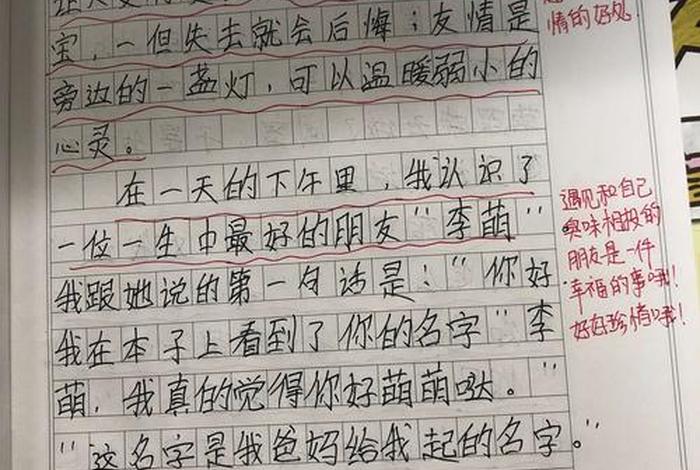 宝，一但失去就会后悔；友情是
旁边的一盏灯，可以温暖弱小的
心灵。
在一天的下午里，我认识了
一位一生中最好的朋友“李萌”
我跟她说的第一句话是：“你好
我在本子上看到了你的名字“李
萌，我真的觉得你好萌萌哒。”
“这名字是我爸妈给我起的名字。”
情的好处
遇见和自己
臭味相投的
朋友是一件
幸福的事哦！
好好珍惜哦！